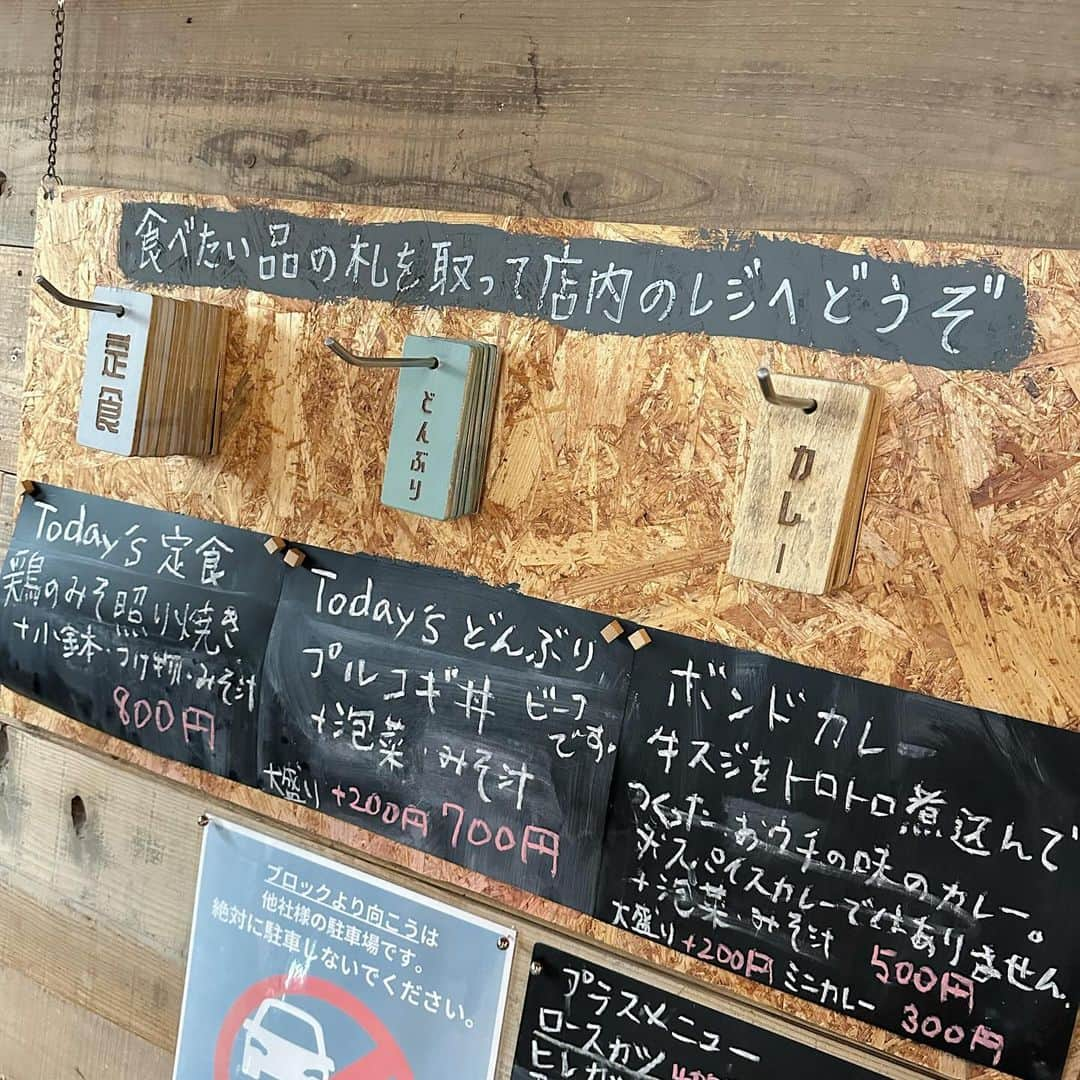 食べたい品の札を取って店内のレジへどうぞ
定食
どんぶり
カレー
Today's 定食
鶏のみそ照り焼き
+小鉢・つけ物・みそ汁
800円
Today's どんぶり
プルコギ丼 ビーフです。
+泡菜・みそ汁
大盛り +200円 700円
ボンドカレー
牛スジをトロトロ煮込んで
つくった おウチの味のカレー。
※スパイスカレーではありません。
+泡菜・みそ汁 500円
大盛り +200円 ミニカレー 300円
ブロックより向こうは
他社様の駐車場です。
絶対に駐車しないでください。
プラスメニュー
ロースカツ
ヒレカ